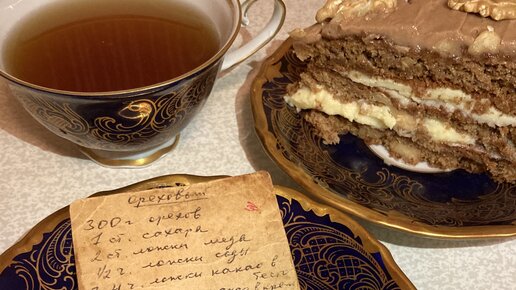 Ореховый
300 г орехов
1 ст. сахара
2 ст. ложки меда
1/2 ч. ложки соды
ч. ложки какао в